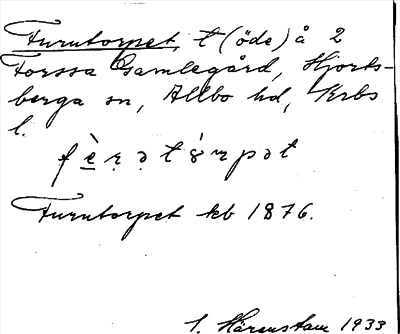 Furutorpet, t (öde) å 2
Torssa Gamlegård, Hjorts-
berga sn, Allbo hd, Krbs
l.
Furutorpet kb 1876.
I. Härenstam 1933